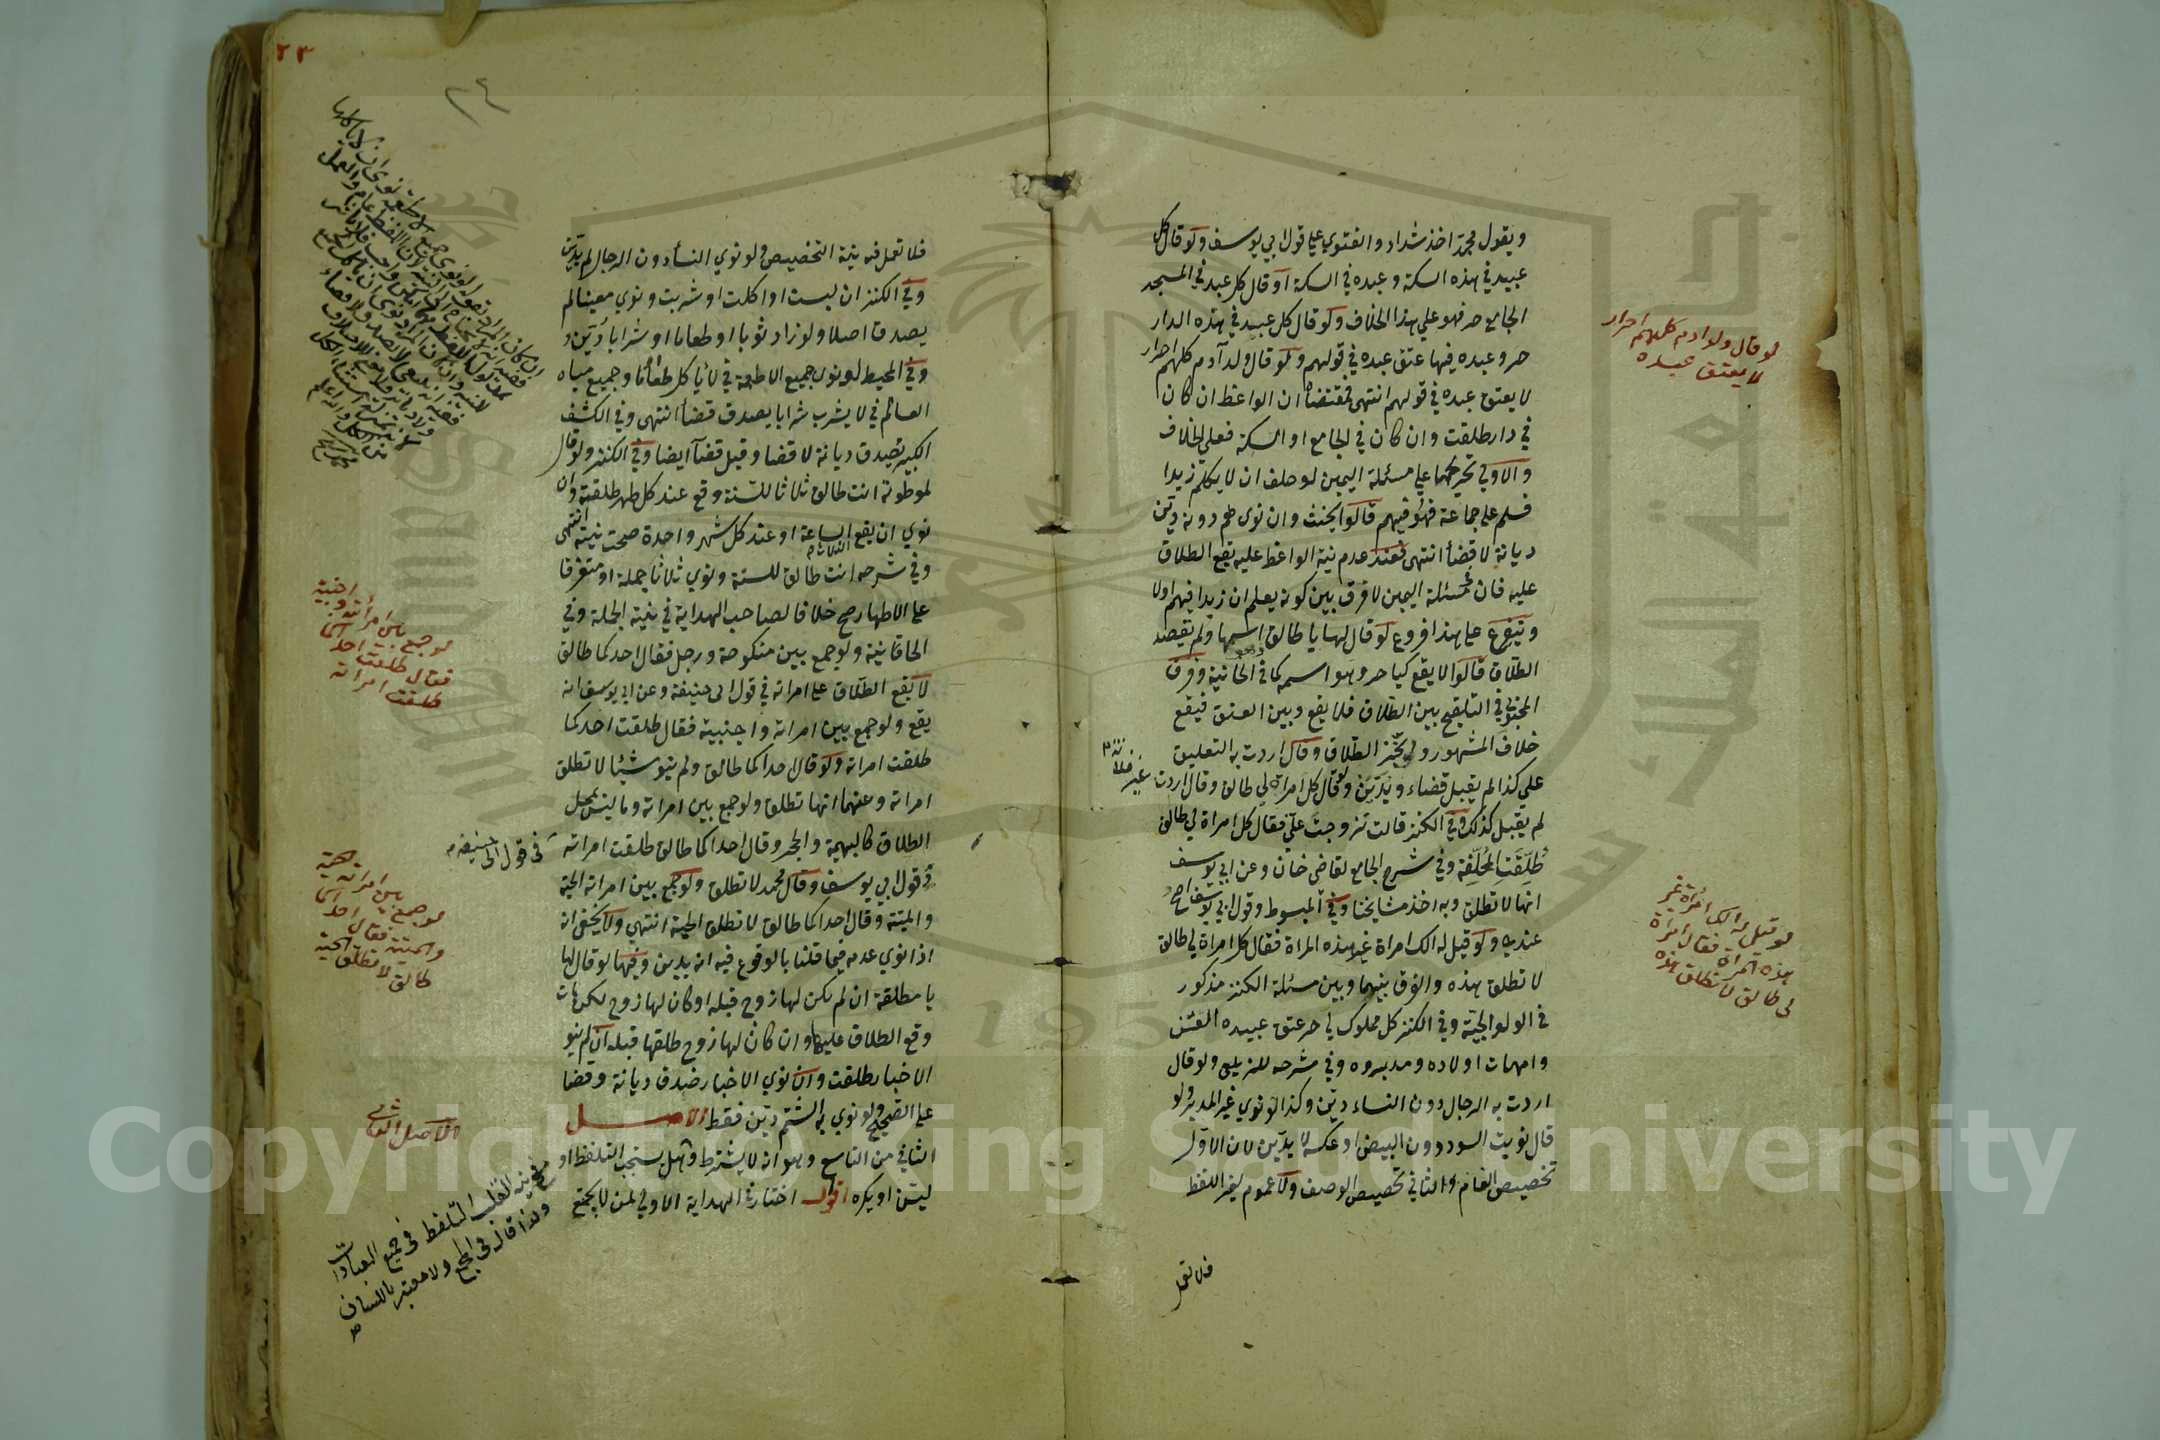 ويقول محمد اخذ شداد والفتوي علي قول ابي يوسف ولو قال كل
عبيد في هذه السكة وعبده في السكة او قال كل عبد في المسجد
الجامع حر فهو علي هذا الخلاف ولو قال كل عبيد في هذه الدار
حر وعبده فيها عتق عبده في قولهم ولو قال ولد آدم كلهم احرار
لا يعتق عبده في قولهم انتهى فمقتضاه ان الواعظ ان كان
في دار طلقت وان كان في الجامع او السكة فعلي الخلاف
والاولي تخريجها علي مسئلة اليمين لو حلف ان لا يكلم زيدا
فسلم علي جماعة فهو فيهم قالوا يحنث وان نوى هم دونه دين
ديانة لا قضأ انتهى فعند عدم نية الواعظ عليه يقع الطلاق
عليه فان مسئلة اليمين لا فرق بين كونه يعلم ان زيدا فيهم اولا
وتفرع علي هذا فروع لو قال لها يا طالق وهو اسمها ولم يقصد
الطلاق قالوا لا يقع كيا حر وهو اسمه كما في الخانية وفرق
المحبوبي في التلقيح بين الطلاق فلا يقع وبين العتق فيقع
خلاف المشهور ولو نجز الطلاق وقال اردت به التعليق
علي كذا لم يقبل قضاء ويدين ولو قال كل امراة لي طالق وقال اردت غير فلانة
لم يقبل كذلك وفي الكنز قالت تزوجت علي فقال كل امراة لي طالق
طلقت المحلفة وفي شرح الجامع لقاضي خان وعن ابي يوسف
انها لا تطلق وبه اخذ مشايخنا وفي المبسوط وقول ابي يوسف اصح
عندي ولو قيل له الك امراة غير هذه المراة فقال كل امراة لي طالق
لا تطلق هذه والفرق بينهما وبين مسئلة الكنز مذكور
في الولوالجية وفي الكنز كل مملوك لي حر عتق عبيده القن
وامهات اولاده ومدبروه وفي شرحه للزيلعي ولو قال
اردت به الرجال دون النساء دين وكذا لو نوي غير المدبر ولو
قال نويت السود دون البيض او عكسه لا يدين لان الاول
تخصيص العام والثاني تخصيص الوصف ولا عموم لغير اللفظ
فلا تعمل
لو قال ولد ادم كلهم احرار
لا يعتق عبده
لو قيل له الك امراة غير
هذه المراة فقال امراة
لي طالق لا تطلق هذه
٢٣
٢٤
فلا تعمل فيه نية التخصيص ولو نوي النسأ دون الرجال لم يدين
وفي الكنز ان لبست او اكلت او شربت ونوي معينا لم
يصدق اصلا ولو زاد ثوبا او طعاما او شرابا دين و
وفي المحيط لو نوى جميع الاطعمة في لا ياكل طعاما وجميع مياه
العالم في لا يشرب شرابا يصدق قضأ انتهى وفي الكشف
الكبير يصدق ديانة لا قضا وقيل قضأ ايضا وفي الكنز ولو قال
لموطوئة انت طالق ثلاثا للسنة وقع عند كل طهر طلقة وان
نوي ان يقع الثلاث الساعة او عند كل شهر واحدة صحت نيته انتهى
وفي شرحه انت طالق للسنة ونوي ثلاثا جملة او متفرقا
علي الاطهار صح خلافا لصاحب الهداية في نية الجملة وفي
الخانية ولو جمع بين منكوحة ورجل فقال احدكما طالق
لا يقع الطلاق علي امراته في قول ابي حنيفة وعن ابي يوسف انه
يقع ولو جمع بين امراته واجنبية فقال طلقت احدكما
طلقت امراته ولو قال احداكما طالق ولم ينو شيئا لا تطلق
امراته وعنهما انها تطلق ولو جمع بين امراته وما ليس بمحل
الطلاق كالبهيمة والحجر وقال احداكما طالق طلقت امراته في قول ابي حنيفة
وقول ابي يوسف وقال محمد لا تطلق ولو جمع بين امراته الحية
والميتة وقال احداكما طالق لا تطلق الحية انتهي ولا يخفى انه
اذا نوي عدمه فيما قلنا بالوقوع فيه انه يدين وفيها لو قال لها
يا مطلقة ان لم يكن لها زوج قبله او كان لها زوج لكن مات
وقع الطلاق عليها وان كان لها زوج طلقها قبله ان لم ينو
الاخبار طلقت وان نوي الاخبار صدق ديانة وقضا
علي الصحيح ولو نوي به الشتم دين فقط الاصل
الثاني من التاسع وهو انه لا يشترط وهل يستحب التلفظ او
يسن او يكره اقوال اختار في الهداية الاولي لمن لا يجتمع
مع نية القلب التلفظ في جميع العبادات
ولذا قال في المجمع ولا معتبر باللسان
لو جمع بين امرأته واجنبية
فقال طلقت احداكما
طلقت امراته
لو جمع بين امراته الحية
والميتة فقال احداكما
طالق لا تطلق الحية
الاصل الثاني
Copyright © King Saud University
جامعة الملك سعود
195